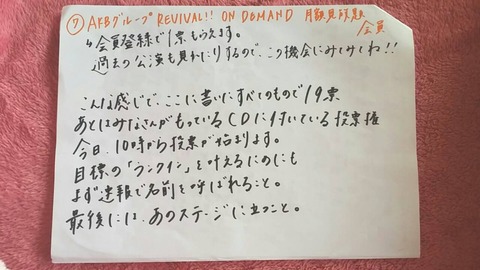 ⑦ AKBグループ REVIVAL!! ON DEMAND 月額見放題
会員
↳ 会員登録で1票もらえます。
過去の公演も見れたりするので、この機会にみてみてね!!
こんな感じで、ここに書いたすべてのもので19票
あとはみなさんがもっているCDに付いている投票権
今日、10時から投票が始まります。
目標の「ランクイン」を叶えるためにも
まず速報で名前を呼ばれること。
最後には、あのステージに立つこと。